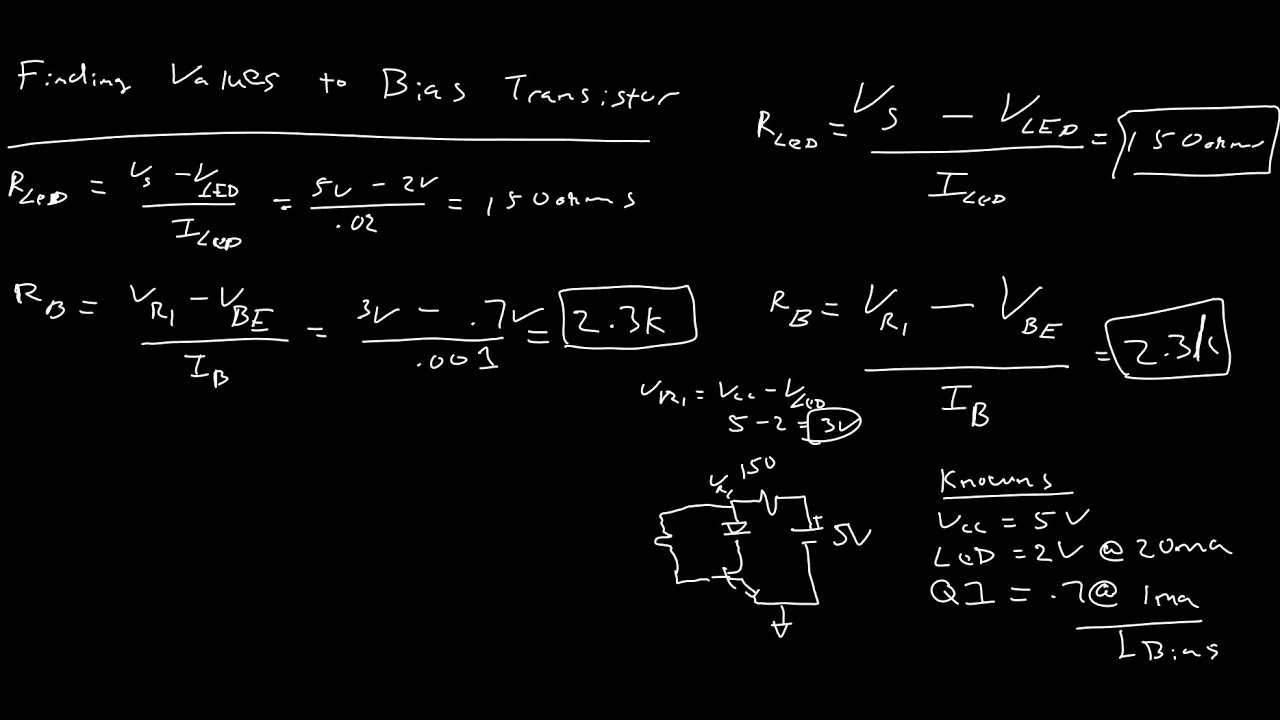 Finding Values to Bias Transistor
R_LED = (V_S - V_LED) / I_LED = (5V - 2V) / .02 = 150 ohms
R_B = (V_R1 - V_BE) / I_B = (3V - .7V) / .001 = 2.3k
R_LED = (V_S - V_LED) / I_LED = 150 ohms
R_B = (V_R1 - V_BE) / I_B = 2.3k
V_R1 = V_CC - V_LED
5 - 2 = 3V
V_R1 150
5V
Knowns
V_CC = 5V
LED = 2V @ 20ma
Q1 = .7 @ 1ma
L Bias